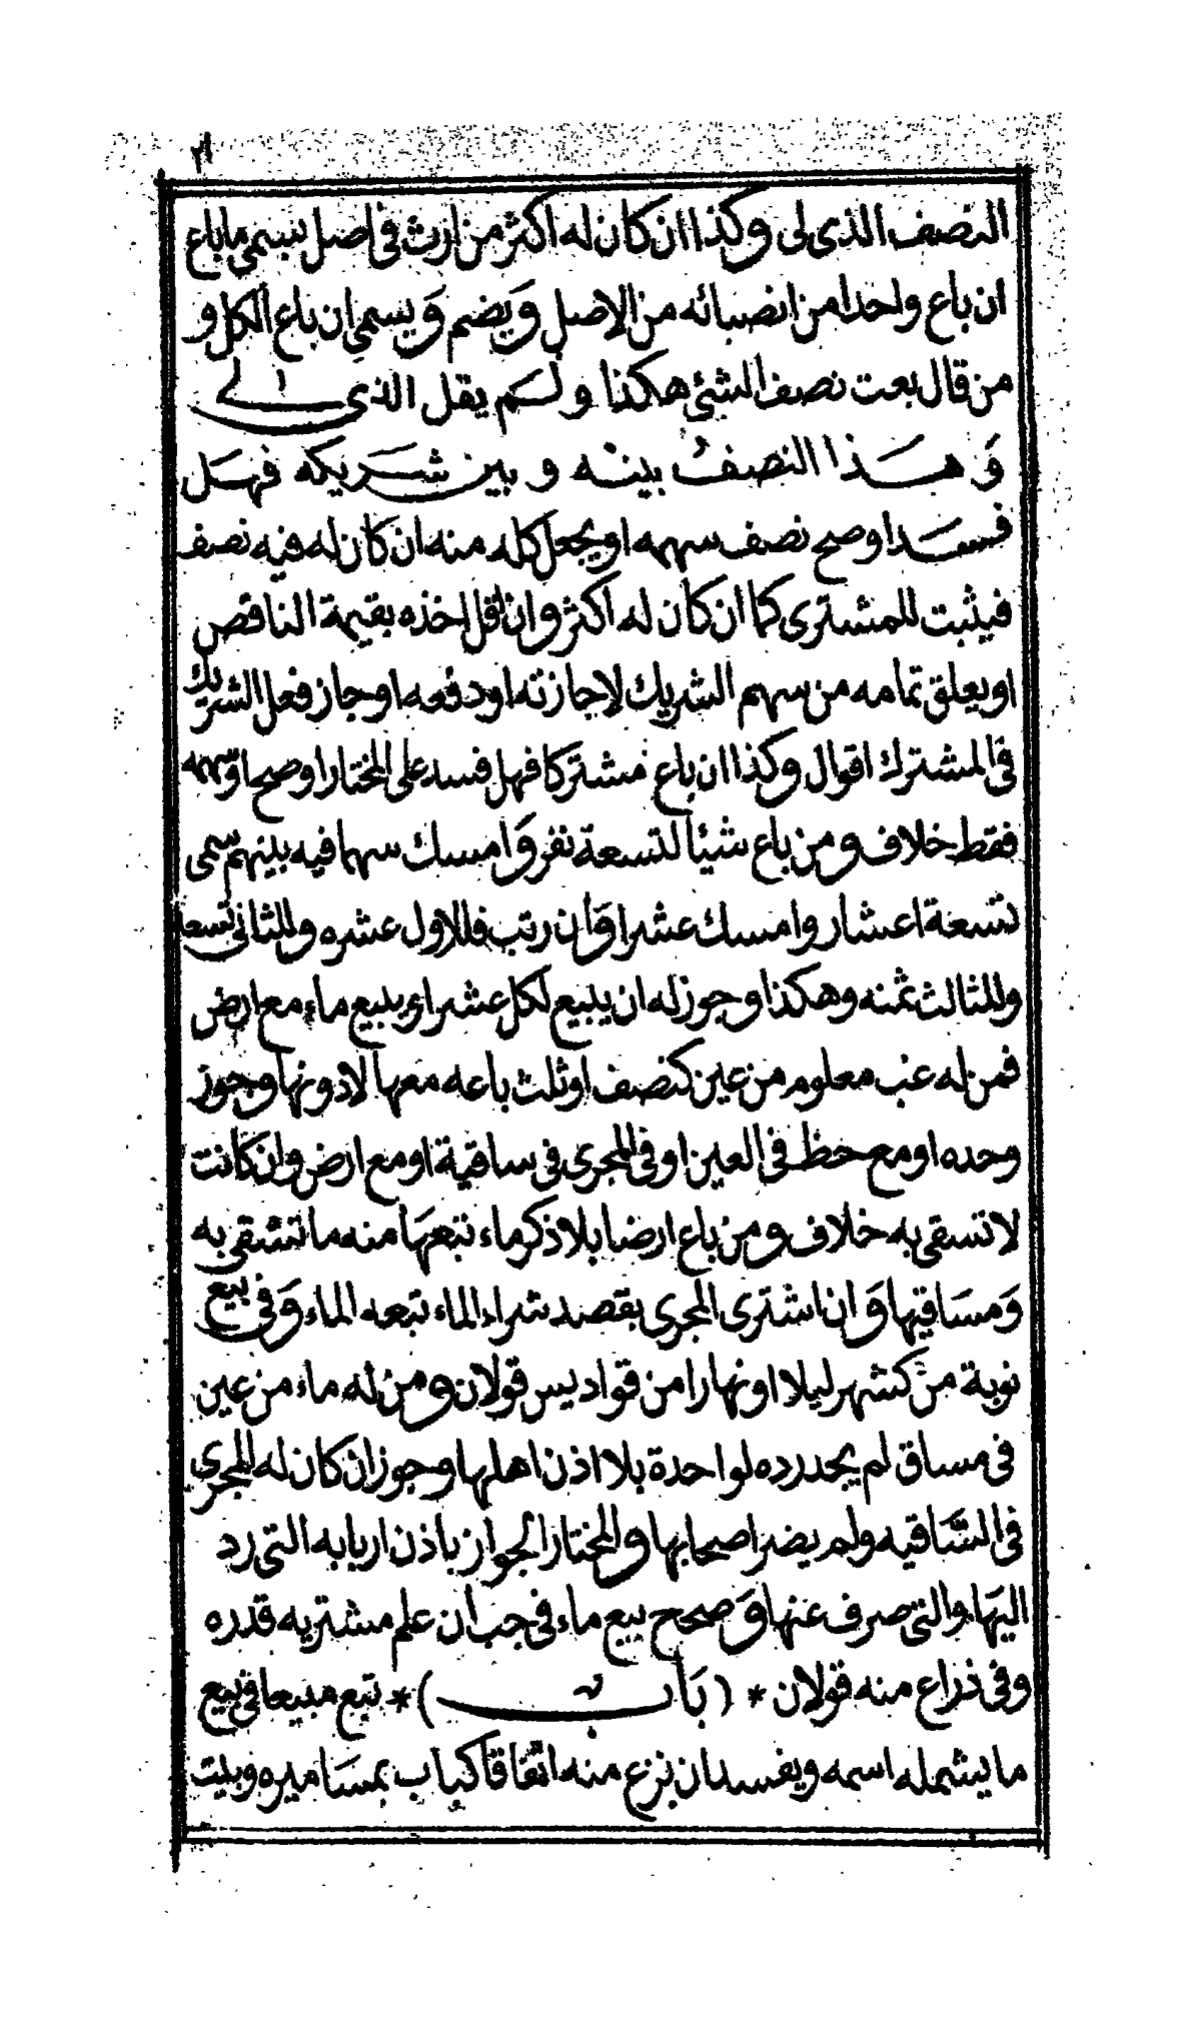 ٢١
النصف الذى لى وكذا ان كان له اكثر من ارث فى اصل يسمى ما باع
ان باع واحدا من انصبائه من الاصل وَيضم وَيسمى ان باع الكل و
من قال بعت نصف الشئ هكذا ولم يقل الذى لى
وَهذا النصفُ بينه وبين شريكه فهل
فسد او صح نصف سهمه او يجعل كله منه ان كان له فيه نصف
فيثبت للمشترى كما ان كان له اكثر وان اقل اخذه بقيمة الناقص
او يعلق تمامه من سهم الشريك لاجازته او دفعه او جاز فعل الشريك
فى المشترك اقوال وكذا ان باع مشتركا فهل فسد على المختار او صح او سهمه
فقط خلاف ومن باع شيئا لتسعة نفر وَامسك سهما فيه بينهم سمى
تسعة اعشار وامسك عشرا وَان رتب فللاول عشره وللثانى تسعه
وللثالث ثمنه وهكذا وجوز له ان يبيع لكل عشرا وبيع ماء مع ارض
فمن له غب معلوم من عين كنصف اوثلث باعه معها لادونها وجوز
وحده او مع حظ فى العين او فى المجرى فى ساقية او مع ارض وان كانت
لا تسقى به خلاف ومن باع ارضا بلا ذكر ماء تبعهَا منه ما تسقى به
وَمسَاقيها وَان اشترى المجرى بقصد شراء الماء تبعه الماء وَفى بيع
نوبة من كشهر ليلا او نهارا من قواديس قولان ومن له ماء من عين
فى مساق لم يجد رده لواحدة بلا اذن اهلها وجوز ان كان له المجرى
فى السَّاقيه ولم يضر اصحابها والمختار الجواز باذن اربابه التى رد
اليهَا والتى صرف عنها وَصحح بيع ماء فى جب ان علم مشتريه قدره
وفى ذراع منه قولان * ( بَاب ) * تبع مبيعا فى بيع
ما يشمله اسمه ويفسد ان نزع منه اتفاقا كباب بمسَاميره وبيت